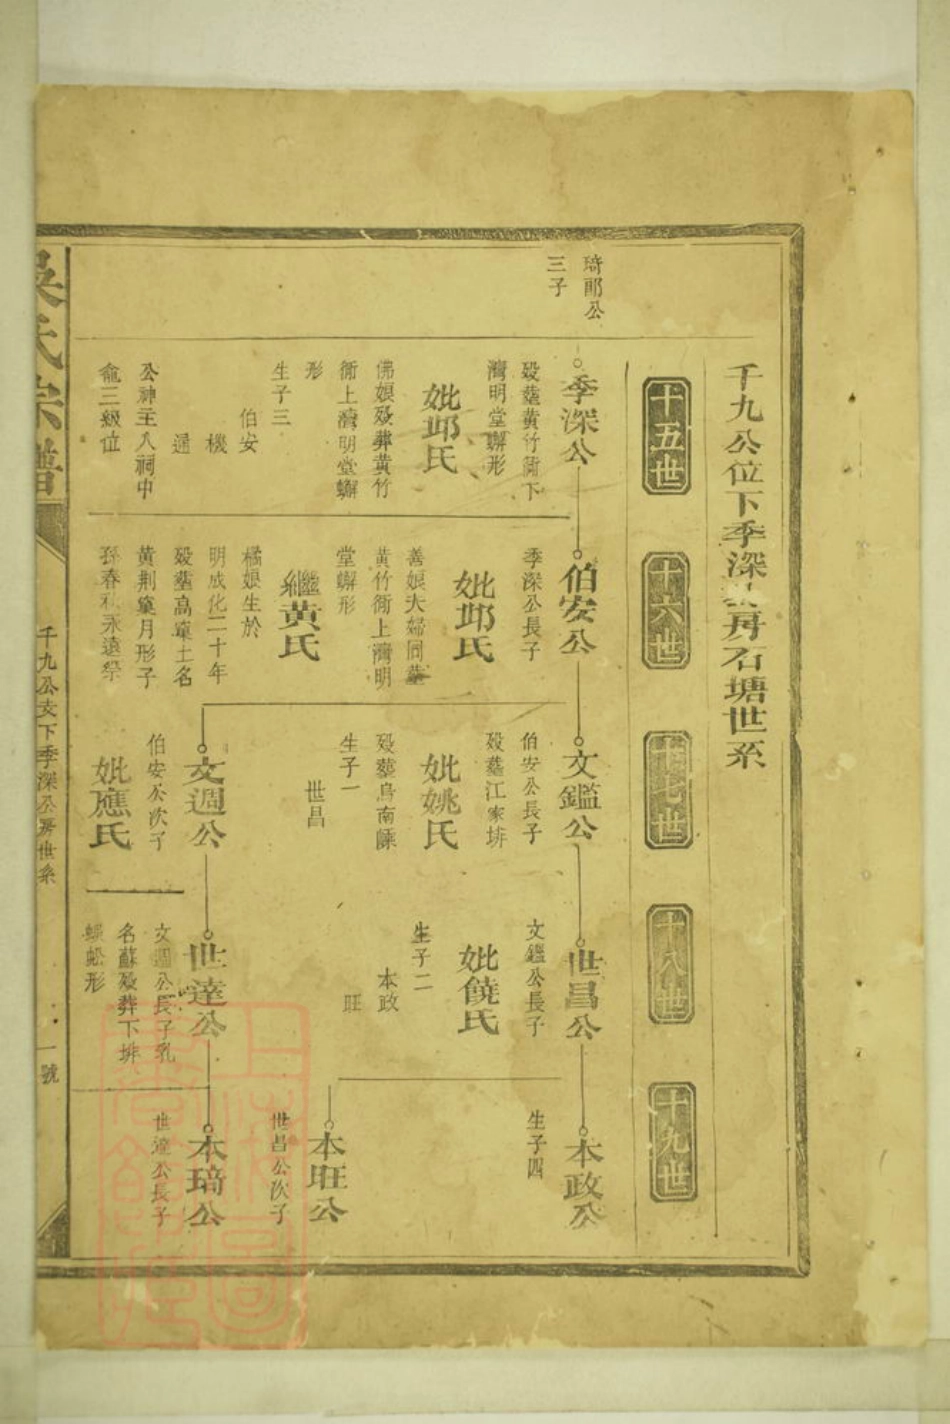 千九公位下季深公房石塘世系
十五世
十六世
十七世
十八世
十九世
琦郎公
三子
季深公
殁塟黄竹衕下
灣明堂蠏形
妣邱氏
佛娘殁葬黄竹
衕上灣明堂蠏
形
生子三
伯安
機
通
公神主入祠中
龕三級位
伯安公
季深公長子
妣邱氏
善娘夫婦同塟
黄竹衕上灣明
堂蠏形
繼黄氏
橘娘生於
明成化二十年
殁塟高窠土名
黄荆窠月形子
孫春秋永遠祭
文鑑公
伯安公長子
殁塟江家排
妣姚氏
殁塟烏南㟷
生子一
世昌
文週公
伯安公次子
妣應氏
世昌公
文鑑公長子
妣饒氏
生子二
本政
旺
世達公
文週公長子乳
名蘇殁葬下排
蜈蚣形
本政公
生子四
本旺公
世昌公次子
本琦公
世達公長子
吳氏宗譜
千九公支下季深公房世系
一號